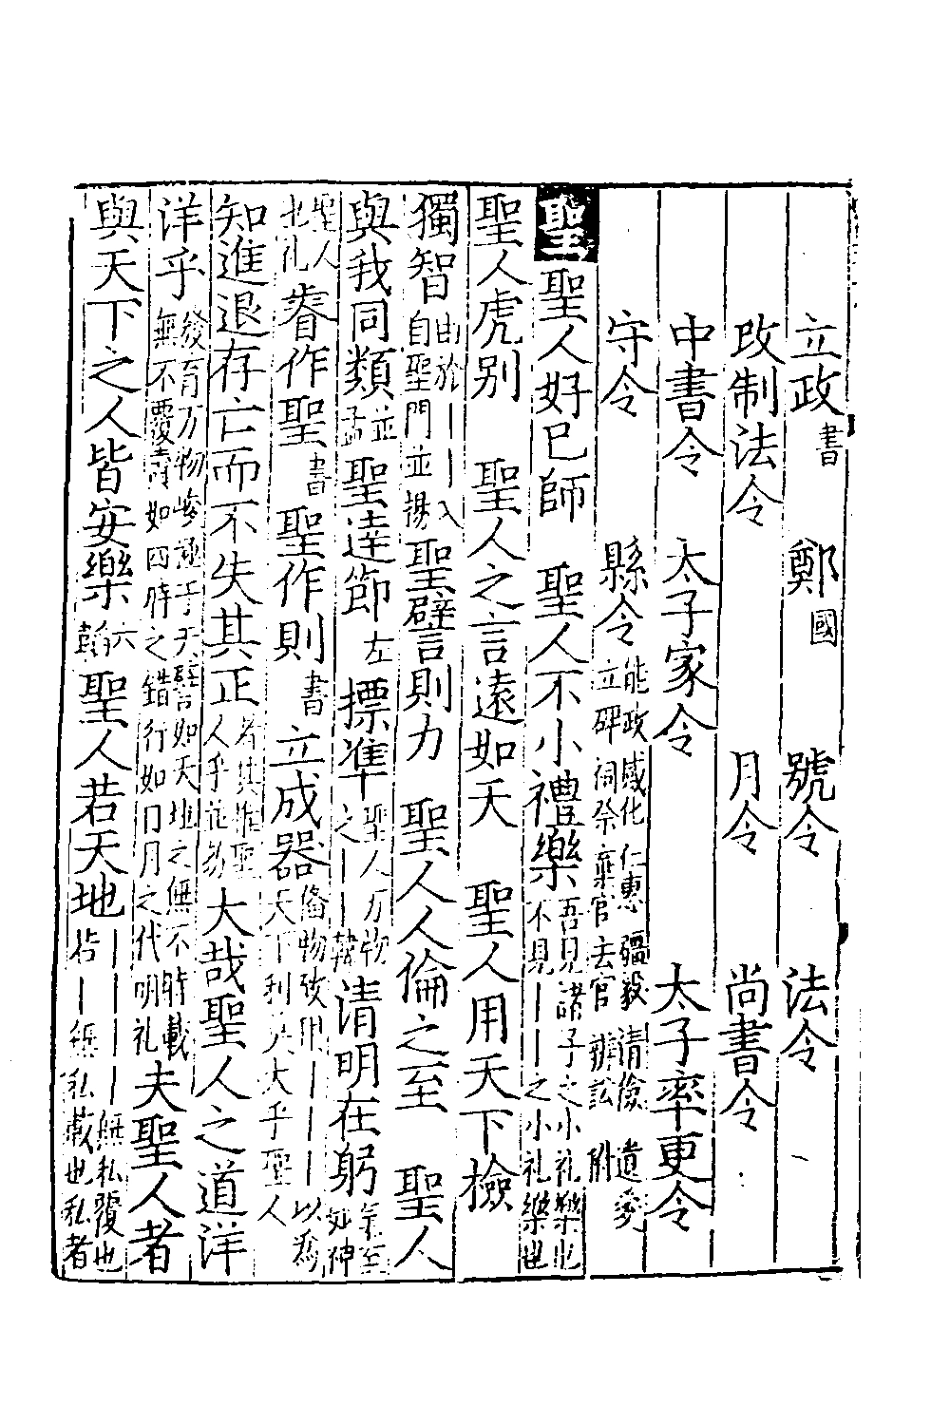 立政書 鄭國 號令 法令
改制法令 月令 尚書令
中書令 太子家令 太子率更令
守令 縣令能政感化仁惠彊毅清儉遺愛立碑祠祭棄官去官辨訟附
聖 聖人好已師 聖人不小禮樂吾見諸子之小礼樂也不見丨丨之小礼樂也
聖人虎别 聖人之言遠如天 聖人用天下檢
獨智由於丨丨入自聖門並揚 聖譬則力 聖人人倫之至 聖人
與我同類並孟 聖達節左 摽準聖人万物之丨丨韓 清明在躬氣至如神
聖人也礼 睿作聖書 聖作則書 立成器俻物致用丨丨丨以為天下利莫大乎聖人
知進退存亡而不失其正者其惟聖人乎 大哉聖人之道洋
洋乎發育万物峻極于天譬如天地之無不持載無不覆燾如四時之錯行如日月之代明礼 夫聖人者
與天下之人皆安樂六韜 聖人若天地丨丨丨丨無私覆也丨無私載也私者